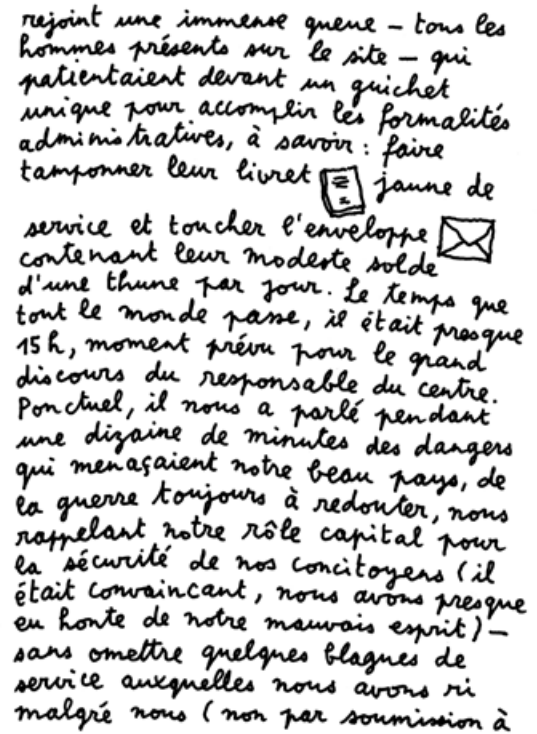 rejoint une immense queue – tous les
hommes présents sur le site – qui
patientaient devant un guichet
unique pour accomplir les formalités
administratives, à savoir : faire
tamponner leur livret jaune de
service et toucher l'enveloppe
contenant leur modeste solde
d'une thune par jour. Le temps que
tout le monde passe, il était presque
15 h, moment prévu pour le grand
discours du responsable du centre.
Ponctuel, il nous a parlé pendant
une dizaine de minutes des dangers
qui menaçaient notre beau pays, de
la guerre toujours à redouter, nous
rappelant notre rôle capital pour
la sécurité de nos concitoyens (il
était convaincant, nous avons presque
eu honte de notre mauvais esprit) –
sans omettre quelques blagues de
service auxquelles nous avons ri
malgré nous (non par soumission à